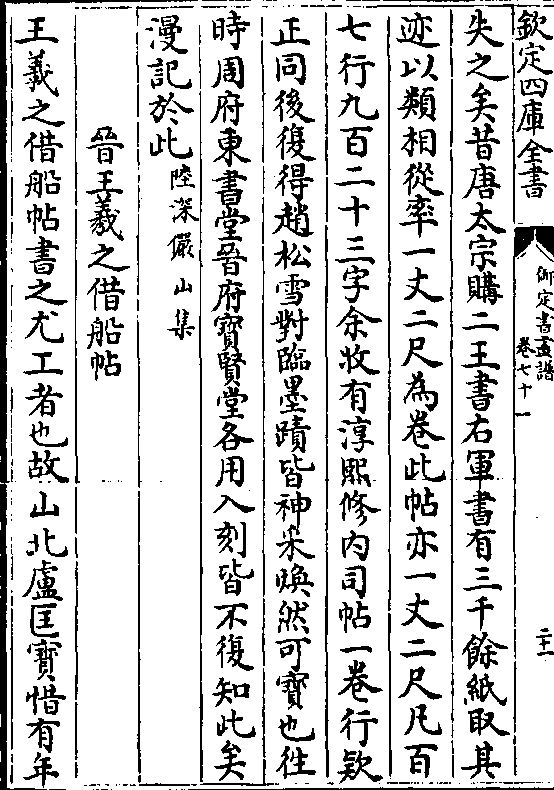 欽定四庫全書
御定書畫譜
卷七十一
二十一
失之矣昔唐太宗購二王書右軍書有三千餘紙取其
迹以類相從率一丈二尺為卷此帖亦一丈二尺凡百
七行九百二十三字余收有淳熙修内司帖一卷行欵
正同後復得趙松雪對臨墨蹟皆神采煥然可寶也徃
時周府東書堂晉府寳賢堂各用入刻皆不復知此矣
漫記於此陸深儼山集
晉王羲之借船帖
王羲之借船帖書之尤工者也故山北盧匡寳惜有年